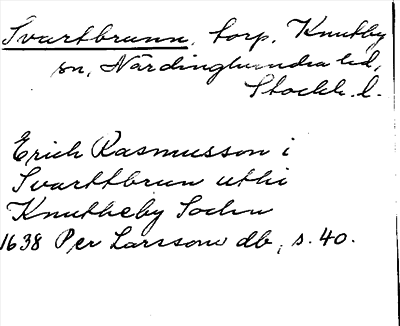 Svartbrunn, torp, Knutby
sn, Närdinghundra hd,
Stockh. l.
Erich Rasmusson i
Svarttbrun uthi
Knutheby Sochn
1638 Per Larssons db, s. 40.